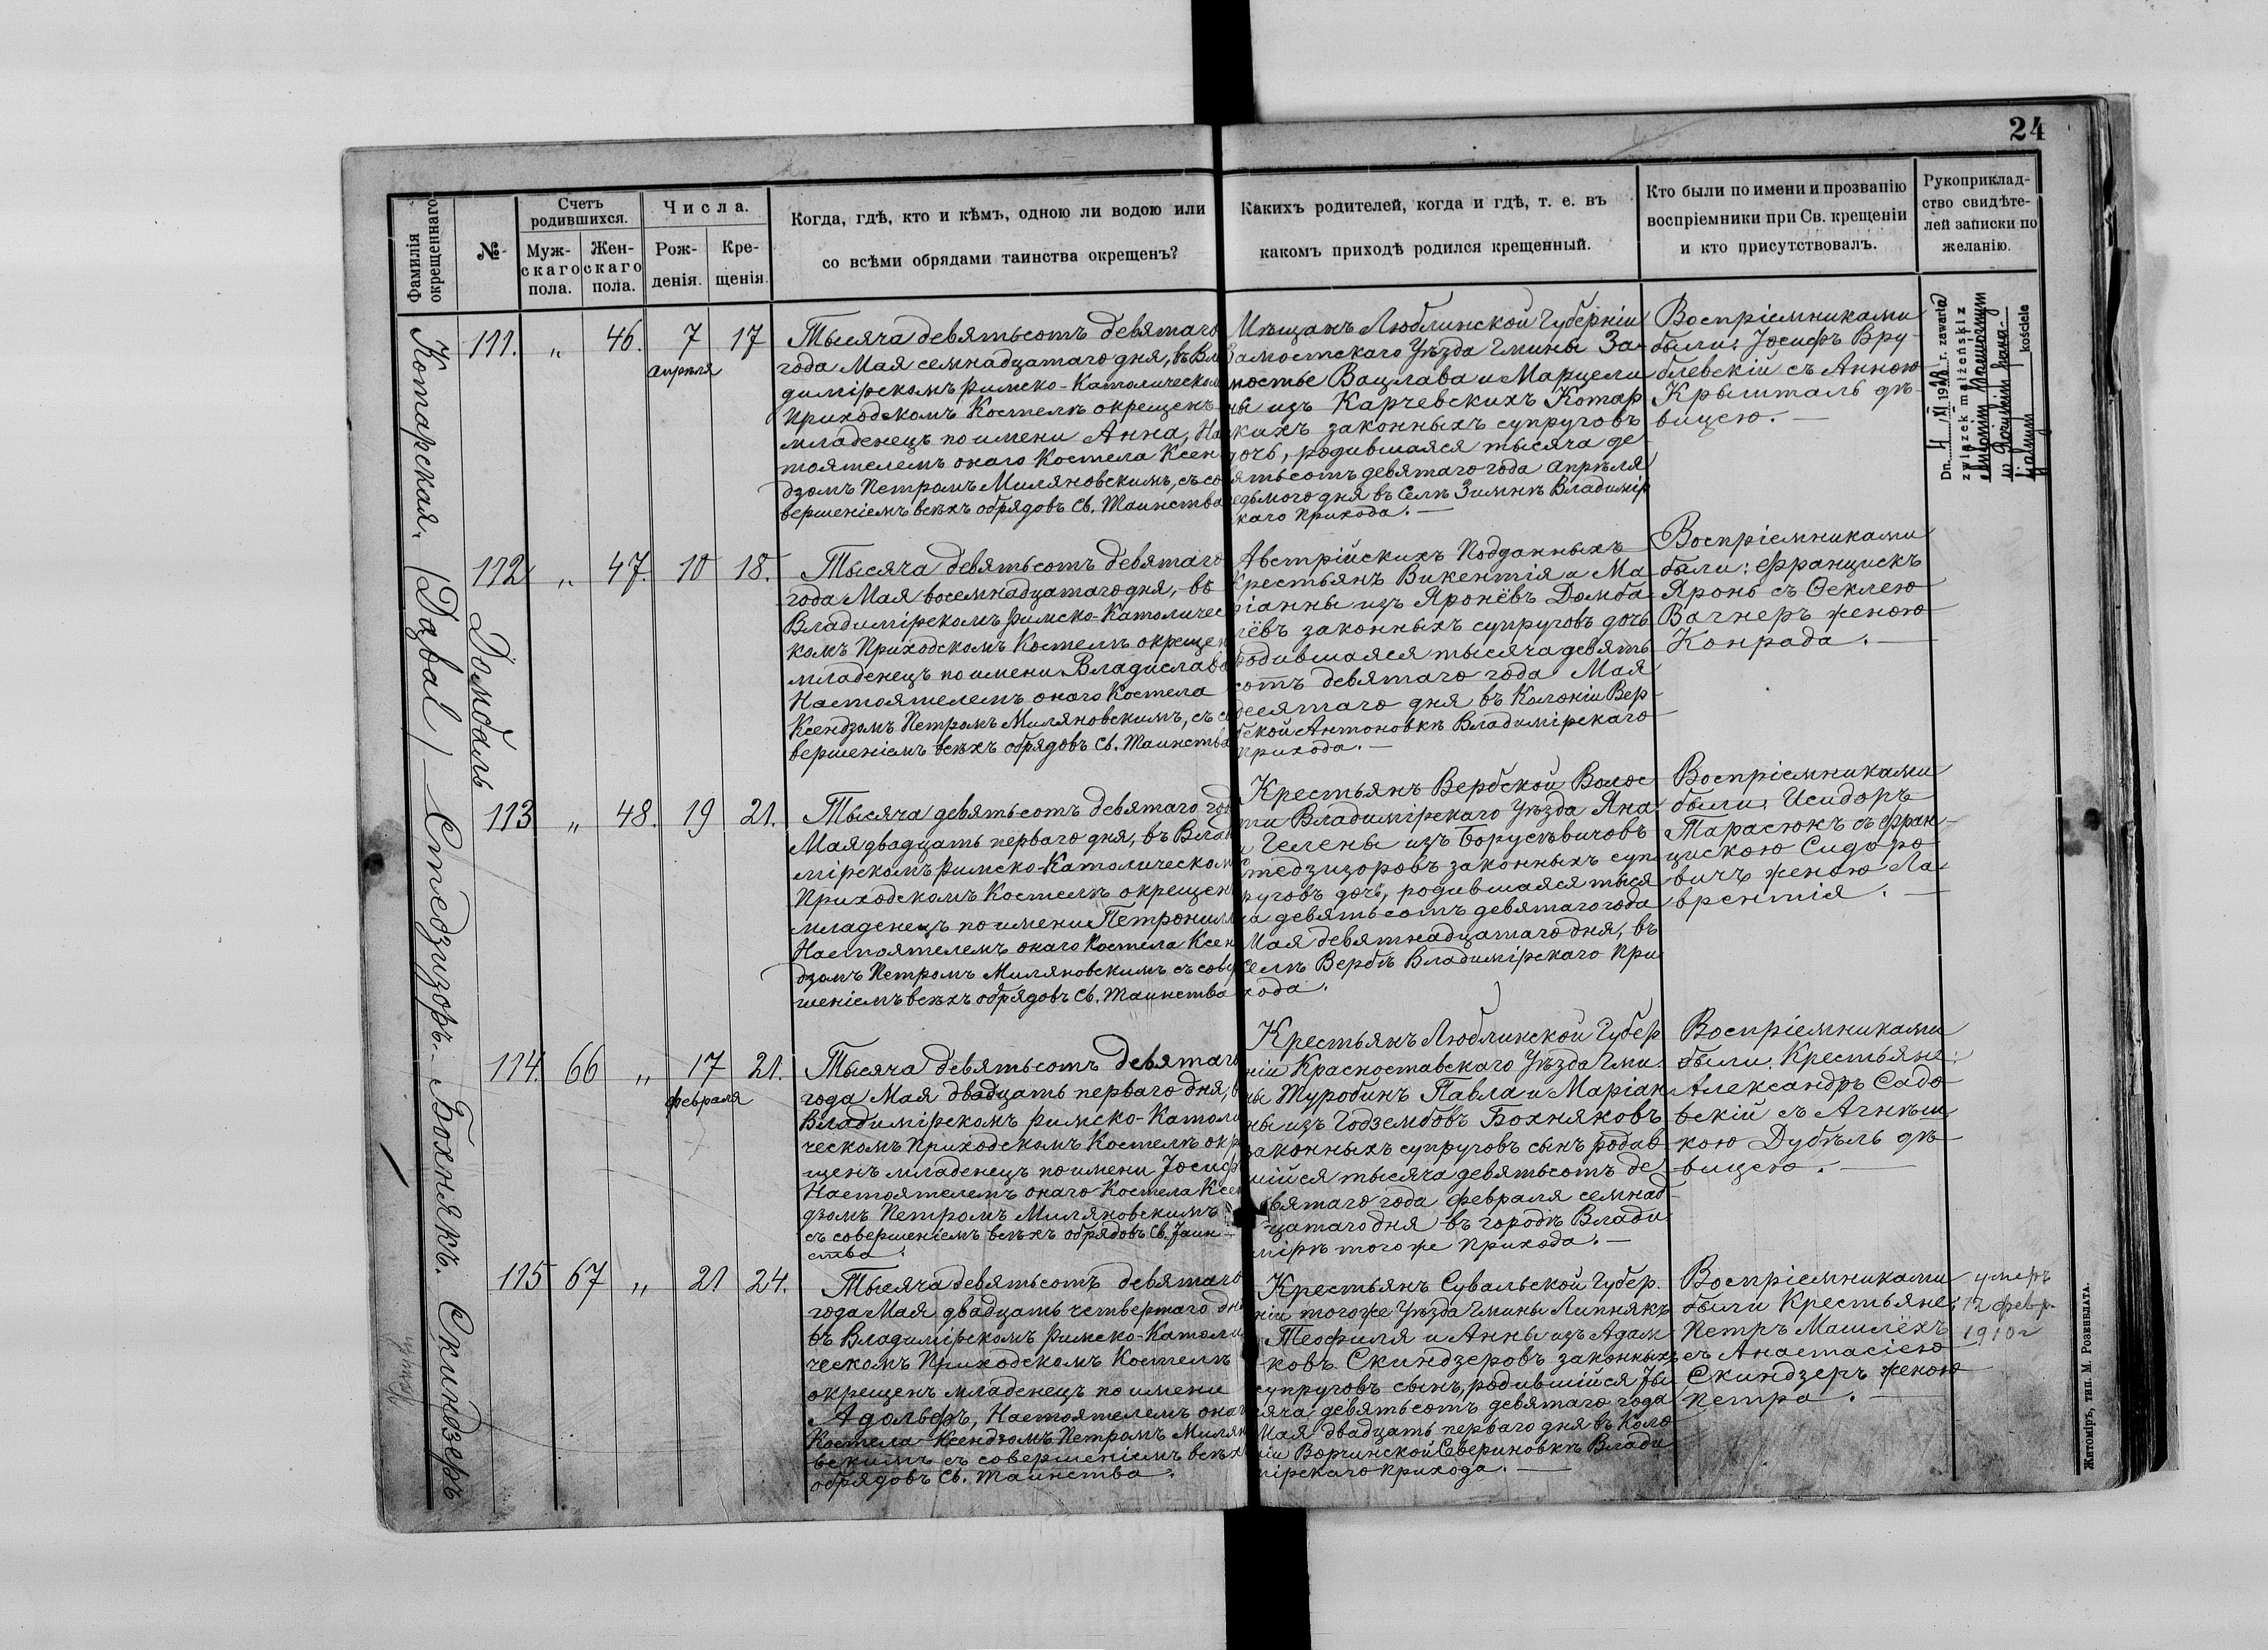 24
Фамилія
окрещеннаго
№
Счетъ
родившихся.
Муж-
скаго
пола.
Жен-
скаго
пола.
Числа.
Рож-
денія.
Кре-
щенія.
Когда, гдѣ, кто и кѣмъ, одною ли водою или
со всѣми обрядами таинства окрещенъ?
Какихъ родителей, когда и гдѣ, т. е. въ
какомъ приходѣ родился крещенный.
Кто были по имени и прозванію
воспріемники при Св. крещеніи
и кто присутствовалъ.
Рукоприклад-
ство свидѣте-
лей записки по
желанію.
Котарская.
111. „ 46. 7 17
апрѣля
Тысяча девятьсотъ девятаго
года Мая семнадцатаго дня, въ Вла
димірскомъ Римско-Католическом
Приходскомъ Костелѣ окрещенъ
младенецъ по имени Анна, На
тоятелемъ онаго Костела Ксен
дзомъ Петромъ Миляновскимъ, съ со
вершеніемъ всѣхъ обрядовъ Св. Таинства
Мѣщанъ Люблинской Губерніи
Замостскаго Уѣзда Гмины За-
мостье Вацлава и Марцели
ны изъ Карчевскихъ Котар
кихъ законныхъ супруговъ
дочь, родившаяся тысяча де
ятьсотъ девятаго года апрѣля
едьмого дня въ Селѣ Зимнѣ Владимір
каго Прихода. —
Воспріемниками
были: Іосифъ Вру-
блевскій съ Анною
Крышталь дѣ-
вицею. —
Dn. 4 XI 1928 r. zawarła
związek małżeński z
kościele
Домбаль (Dąbal)
112 „ 47. 10 18.
Тысяча девятьсотъ девятаго
года Мая восемнадцатаго дня, въ
Владимірскомъ Римско-Католичес
комъ Приходскомъ Костелѣ окрещен
младенецъ по имени Владислава
Настоятелемъ онаго Костела
Ксендзомъ Петромъ Миляновскимъ, съ с
вершеніемъ всѣхъ обрядовъ Св. Таинства
Австрійскихъ Подданныхъ
Крестьянъ Викентія и Ма
ріанны изъ Яронёвъ Домба-
лёвъ законныхъ супруговъ дочь
родившаяся тысяча девять
сотъ девятаго года Мая
десятаго дня въ Колоніи Вер
бской Антоновкѣ Владимірскаго
Прихода. —
Воспріемниками
были: Францискъ
Яронь съ Ѳеклею
Вагнеръ женою
Конрада. —
Стедзизоръ.
113 „ 48. 19 21.
Тысяча девятьсотъ девятаго год
Мая двадцать перваго дня, въ Влад
мірскомъ Римско-Католическом
Приходскомъ Костелѣ окрещен
младенецъ по имени Петронилл
Настоятелемъ онаго Костела Ксен
дзомъ Петромъ Миляновскимъ съ совер
шеніемъ всѣхъ обрядовъ Св. Таинства
Крестьянъ Вербской Волос
ти Владимірскаго Уѣзда Яна
и Гелены изъ Борусѣвичовъ
Стедзизоровъ законныхъ суп
руговъ дочь, родившаяся тыся
ча девятьсотъ девятаго года
Мая девятнадцатаго дня, въ
Селѣ Вербѣ Владимірскаго При
хода.
Воспріемниками
были: Исидоръ
Тарасюкъ съ Фран-
цискою Сидоро
вичъ женою Ла-
врентія. —
Бохнякъ.
114. 66 „ 17 21.
февраля
Тысяча девятьсотъ девятаго
года Мая двадцать перваго дня, в
Владимірскомъ Римско-Католи
ческомъ Приходскомъ Костелѣ окр
щенъ младенецъ по имени Іосиф
Настоятелемъ онаго Костела Ксен
дзомъ Петромъ Миляновскимъ
съ совершеніемъ всѣхъ обрядовъ Св. Таин-
ства.
Крестьянъ Люблинской Губер
ніи Красноставскаго Уѣзда Гми
ны Туробинъ Павла и Маріан
ны изъ Годзембовъ Бохняковъ
законныхъ супруговъ сынъ родив
шійся тысяча девятьсотъ де
вятаго года февраля семнад-
цатаго дня въ городѣ Влади
мірѣ того же Прихода. —
Воспріемниками
были: Крестьяне:
Александръ Садо
вскій съ Агнѣш
кою Дубѣль дѣ-
вицею. —
Скиндзеръ
115 67 „ 21 24.
Тысяча девятьсотъ девятаго
года Мая двадцать четвертаго дн
въ Владимірскомъ Римско-Католи
ческомъ Приходскомъ Костелѣ
окрещенъ младенецъ по имени
Адольфъ, Настоятелемъ онаг
Костела Ксендзомъ Петромъ Милян
вскимъ съ совершеніемъ всѣхъ
обрядовъ Св. Таинства.
Крестьянъ Сувальской Губер.
ніи тогоже Уѣзда Гмины Липнякъ
Теофиля и Анны изъ Адам
ковъ Скиндзеровъ законныхъ
супруговъ сынъ, родившійся ты
сяча девятьсотъ девятаго года
Мая двадцать перваго дня въ Коло
ніи Ворчинской Севериновкѣ Влади
мірскаго Прихода. —
Воспріемниками
были Крестьяне:
Петръ Машлёхъ
съ Анастасіею
Скиндзеръ женою
Петра. —
умеръ
12 февр.
1910 г
Житоміръ, тип. М. Розенблата.